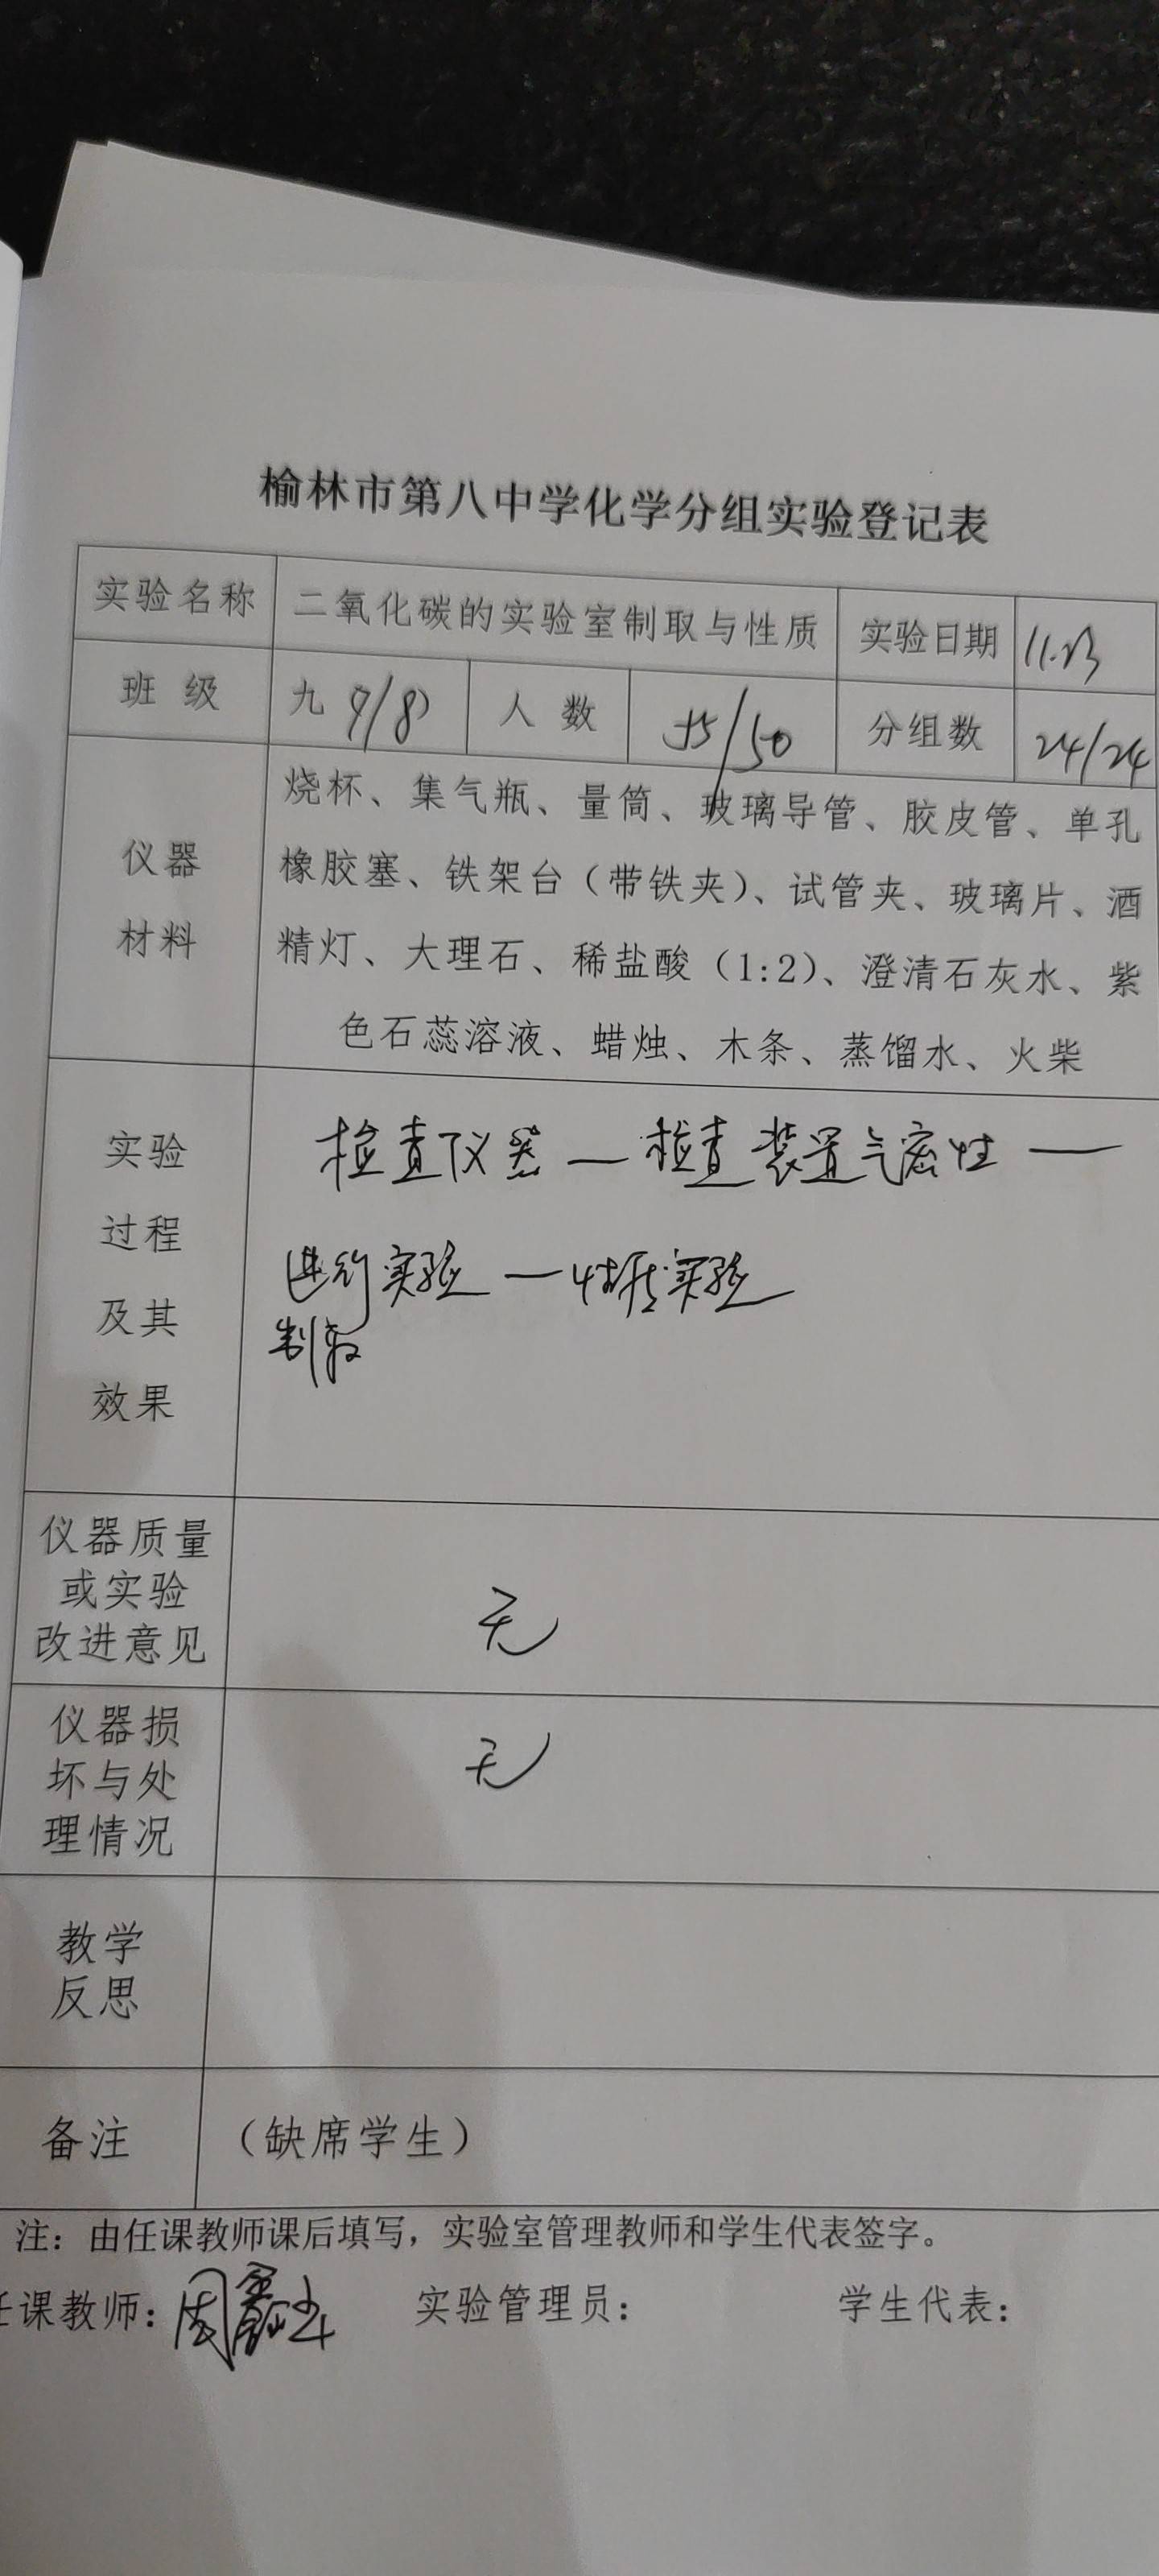 榆林市第八中学化学分组实验登记表
实验名称 二氧化碳的实验室制取与性质 实验日期 11.23
班 级 九 7/8 人 数 55/50 分组数 24/24
仪器
材料
烧杯、集气瓶、量筒、玻璃导管、胶皮管、单孔
橡胶塞、铁架台（带铁夹）、试管夹、玻璃片、酒
精灯、大理石、稀盐酸（1:2）、澄清石灰水、紫
色石蕊溶液、蜡烛、木条、蒸馏水、火柴
实验
过程
及其
效果
检查仪器 — 检查装置气密性 —
进行实验 — 性质实验
制取
仪器质量
或实验
改进意见
无
仪器损
坏与处
理情况
无
教学
反思
备注 （缺席学生）
注：由任课教师课后填写，实验室管理教师和学生代表签字。
任课教师： 周 实验管理员： 学生代表：